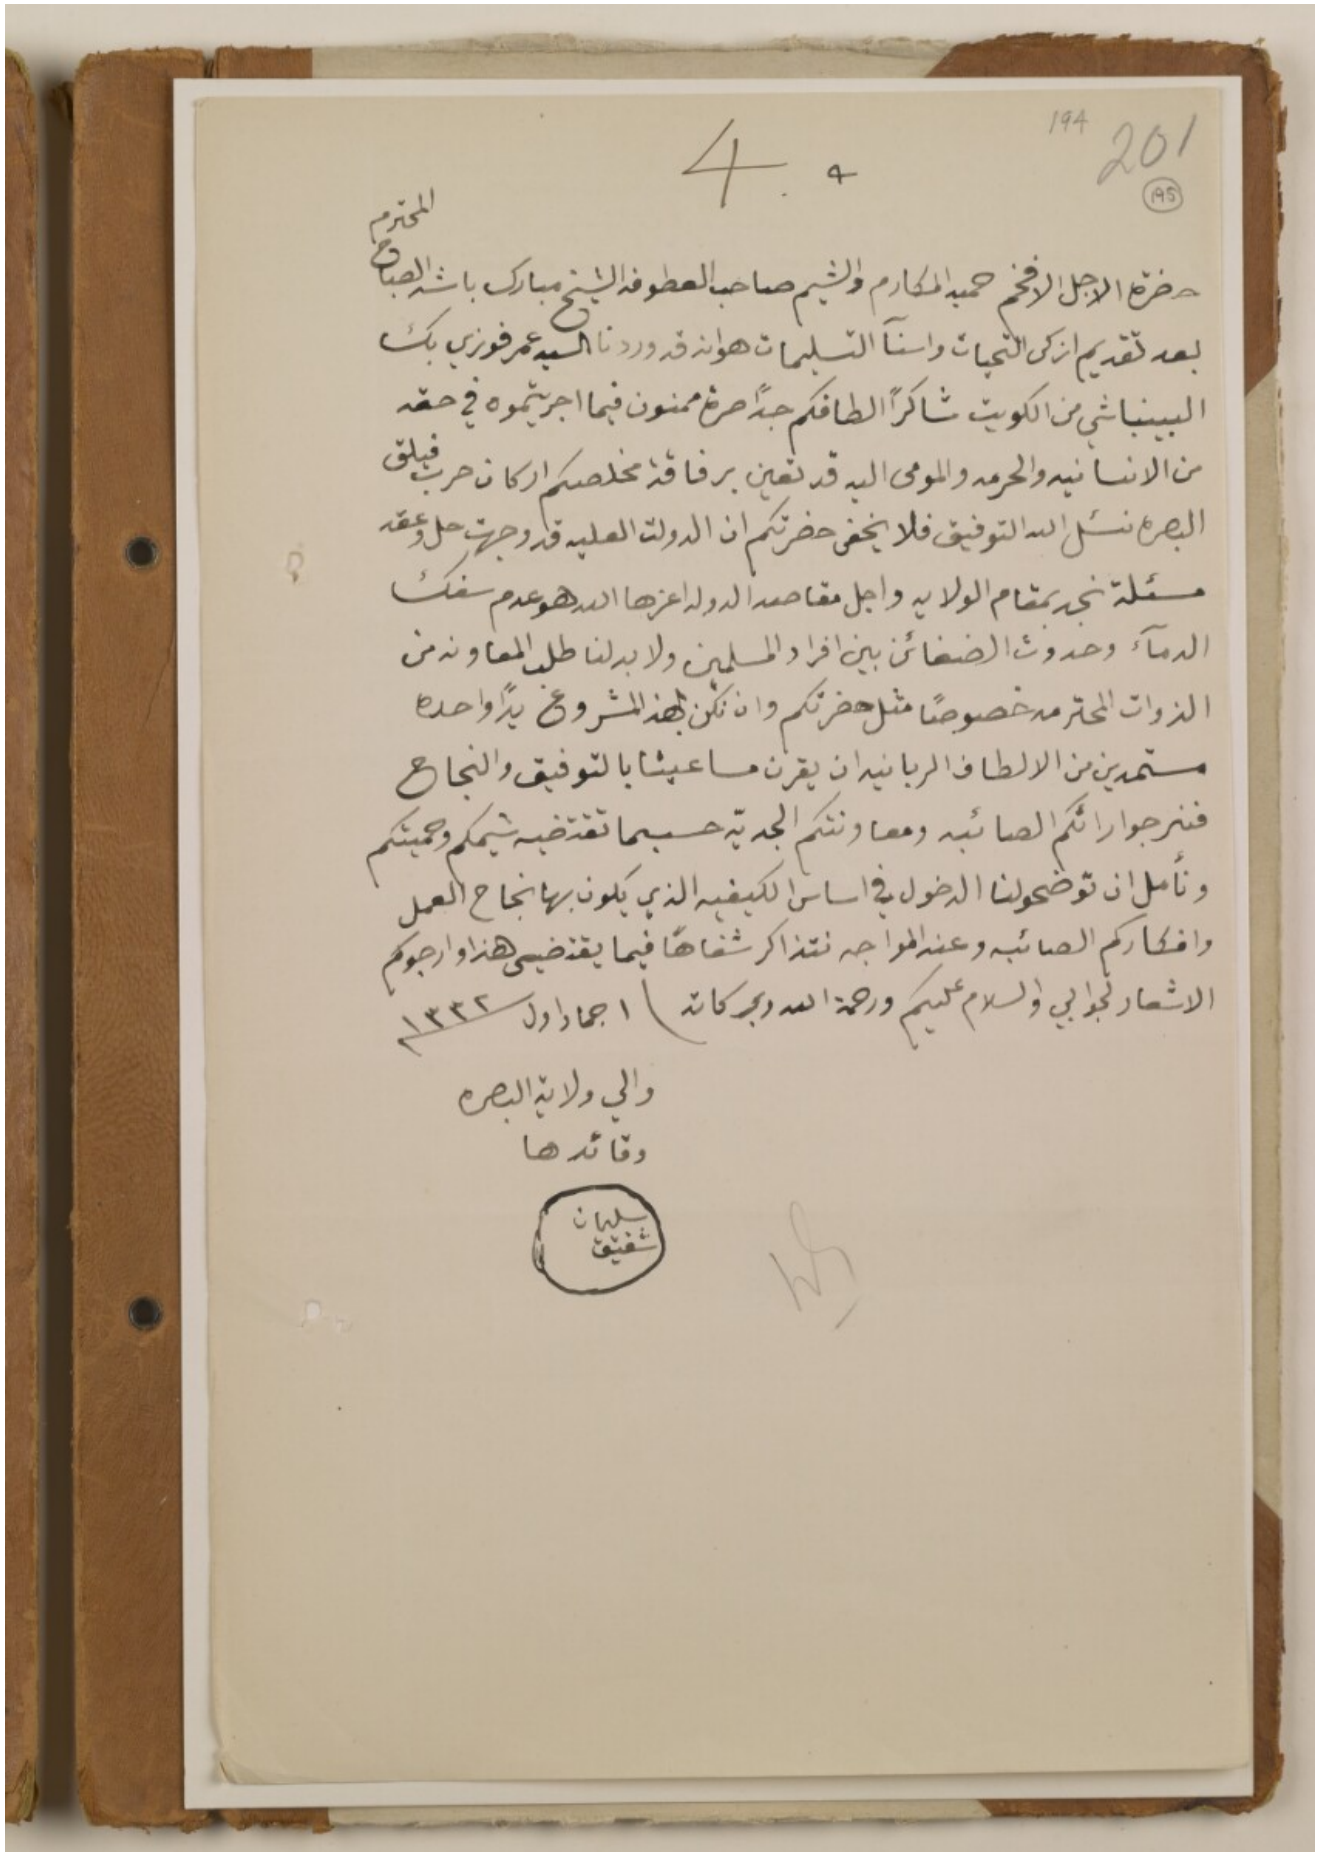 194
201
195
4. 4
المحترم
حضرة الاجل الافخم حميد المكارم والشيم صاحب العطوفه الشيخ مبارك باشه الصباح
بعد تقديم ازكى التحيات واسنآ التسليمات هوانه قد وردنا السيد عمر فوزي بك
البينباشي من الكويت شاكرًا الطافكم جدًا صرة ممنون فيما اجريتموه في حقه
من الانسانيه والحرمه والمومى اليه قد تعين برفاقة مخلصكم اركان حرب فيلق
البصره نسئل الله التوفيق فلا يخفى حضرتكم ان الدولت العليه قد وجهت حل وعقد
مسئلة نجد بمقام الولايه واجل مقاصد الدوله اعزها الله هو عدم سفك
الدمآء وحدوث الضغائن بين افراد المسلمين ولا بد لنا طلب المعاونه من
الذوات المحترمه خصوصًا مثل حضرتكم وان نكن لهذ المشروع يدًا واحده
مستمدين من الالطاف الربانيه ان يقرن مساعينا بالتوفيق والنجاح
فنرجوا رائكم الصائبه ومعاونتكم الجديّه حسبما تقتضيه شيمكم وحميتكم
ونأمل ان توضحولنا الدخول في اساس الكيفيه الذي يكون بها نجاح العمل
وافكاركم الصائبه وعند المواجه نتذاكر شفاهًا فيما يقتضى هذا وارجوكم
الاشعار لجوابي والسلام عليكم ورحمة الله وبركاته ) ١ جماد اول ١٣٣٢
والي ولاية البصره
وقائدها
سليمان
شفيق